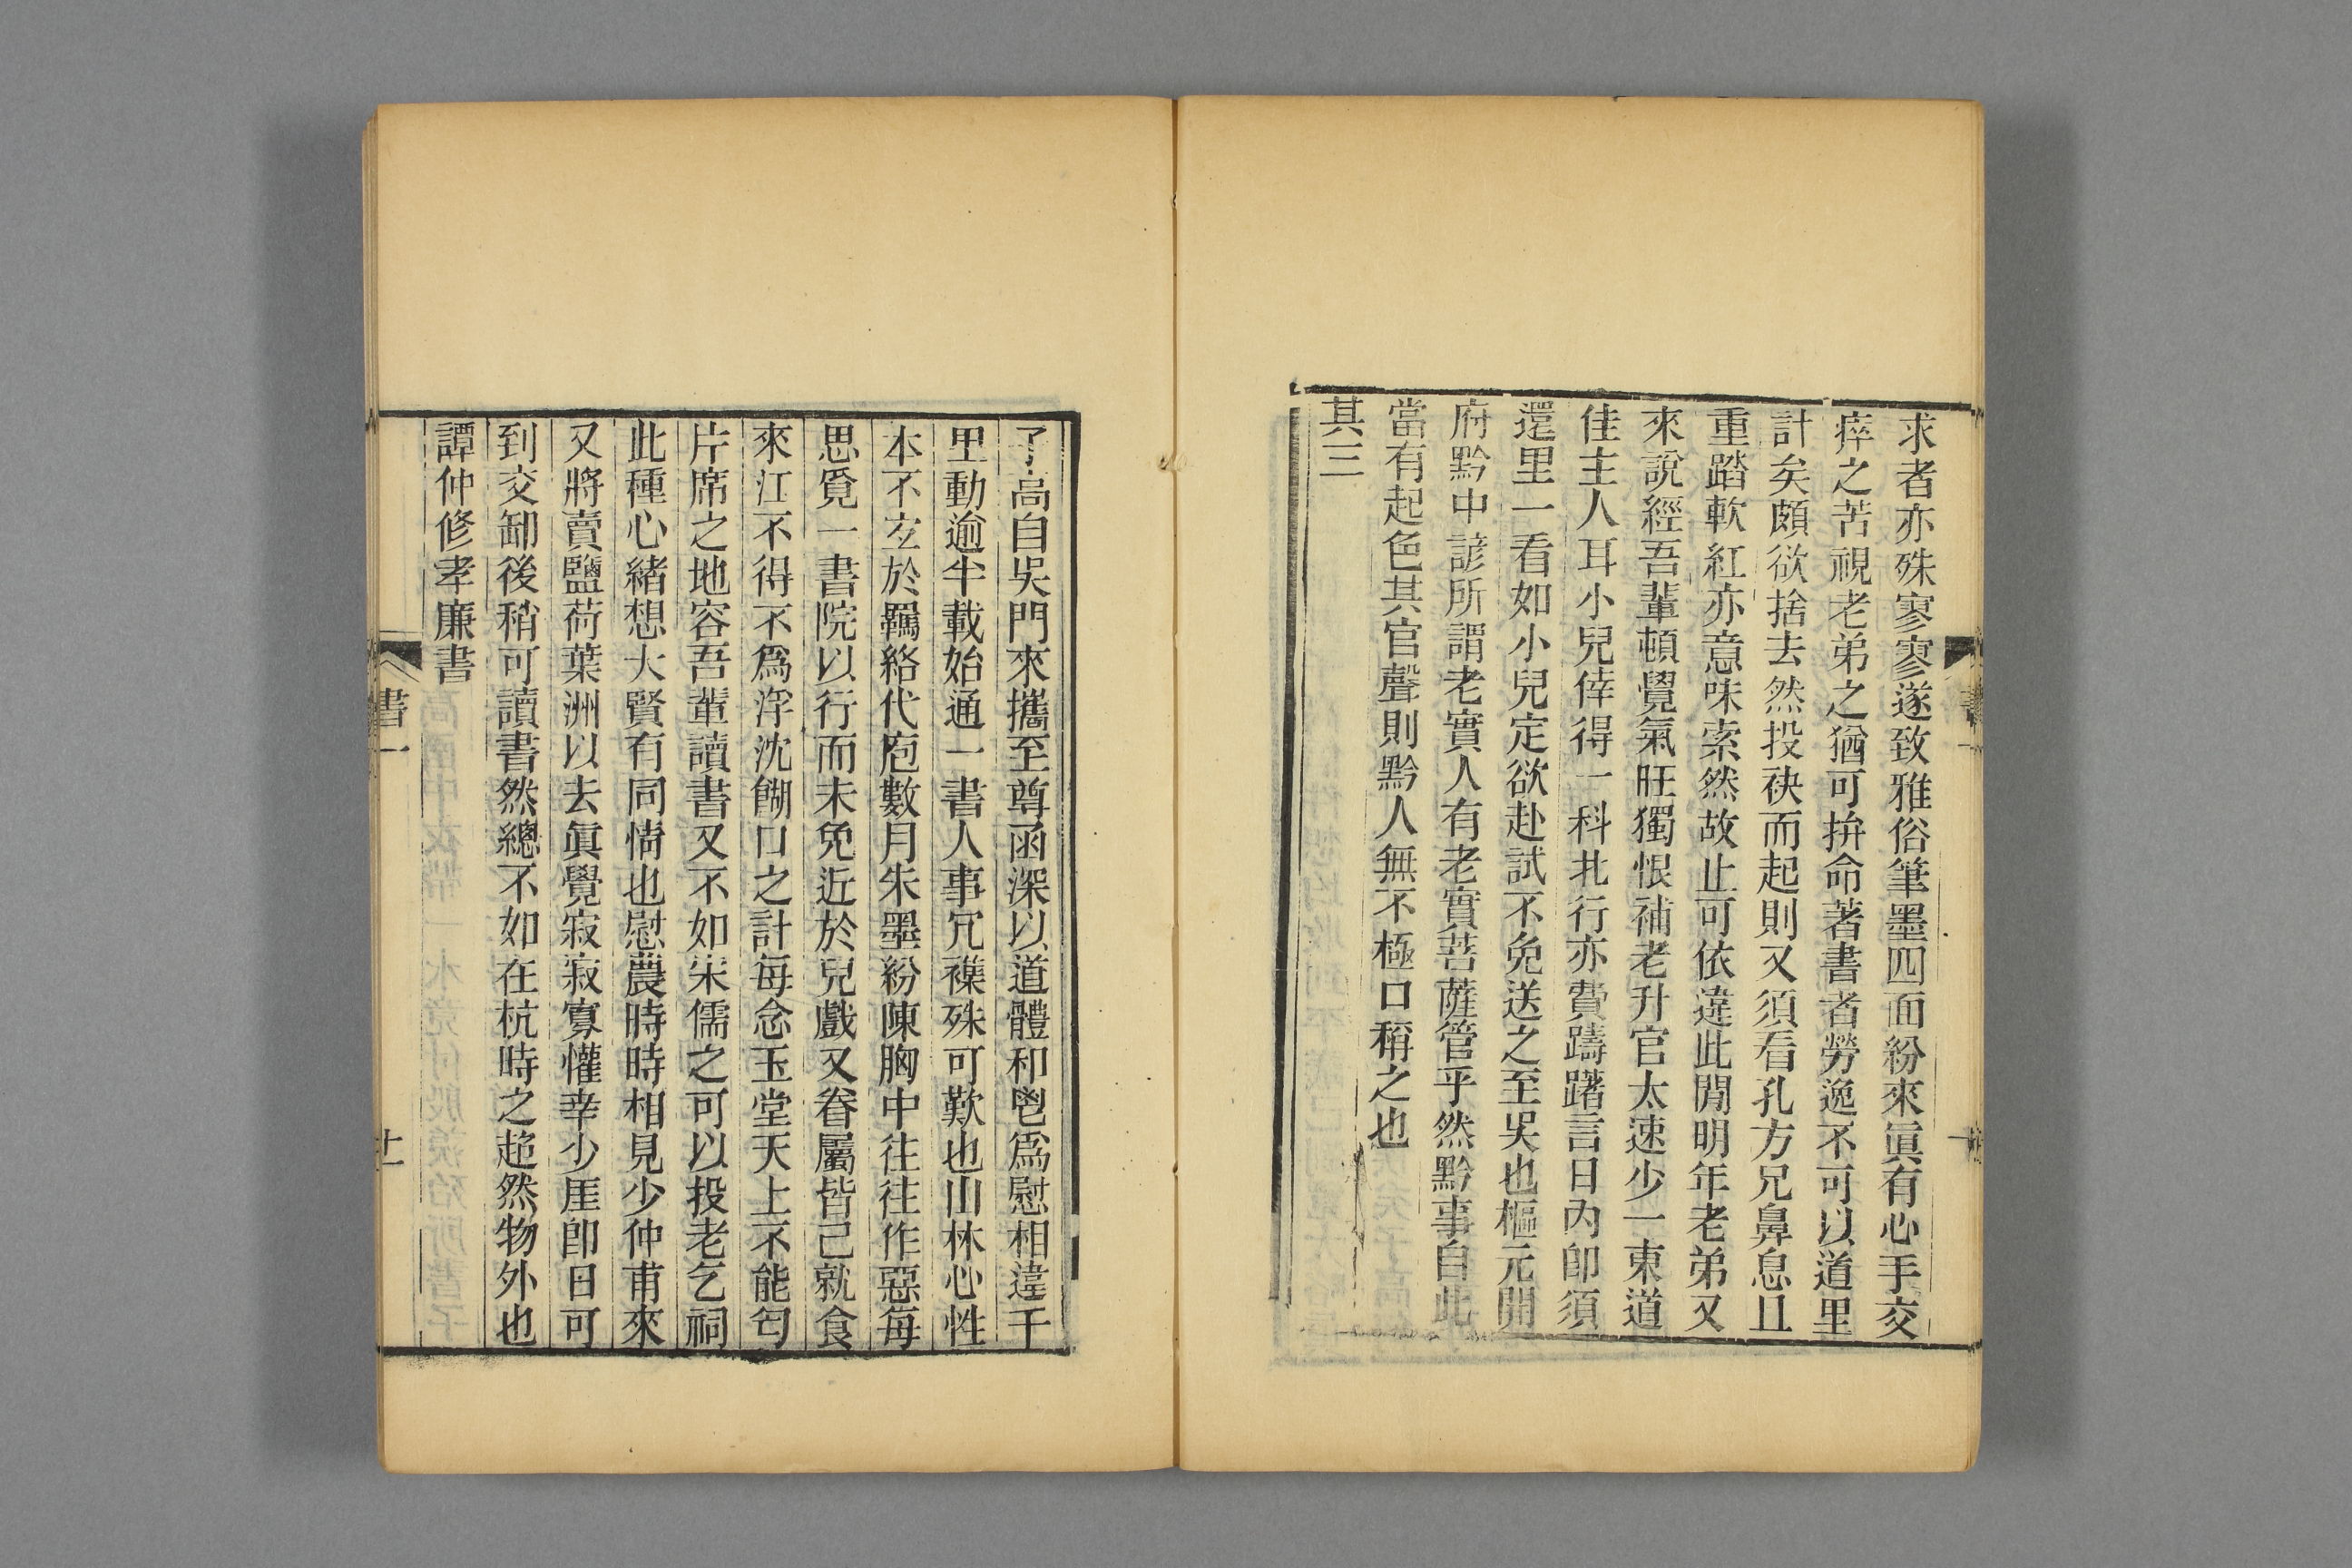 求者亦殊寥寥遂致雅俗筆墨四面紛來眞有心手交
瘁之苦視老弟之猶可拚命著書者勞逸不可以道里
計矣頗欲捨去然投袂而起則又須看孔方兄鼻息且
重踏軟紅亦意味索然故止可依違此閒明年老弟又
來說經吾輩頓覺氣旺獨恨補老升官太速少一東道
佳主人耳小兒倖得一科北行亦費躊躇言日內卽須
還里一看如小兒定欲赴試不免送之至吳也樞元開
府黔中諺所謂老實人有老實菩薩管乎然黔事自此
當有起色其官聲則黔人無不極口稱之也
其三
子高自吳門來攜至尊函深以道體和鬯爲慰相違千
里動逾半載始通一書人事冗襍殊可歎也山林心性
本不宜於羈絡代庖數月朱墨紛陳胸中往往作惡每
思覓一書院以行而未免近於兒戲又眷屬皆已就食
來江不得不爲浮沈餬口之計每念玉堂天上不能匄
片席之地容吾輩讀書又不如宋儒之可以投老乞祠
此種心緒想大賢有同情也慰農時時相見少仲甫來
又將賣鹽荷葉洲以去眞覺寂寂寡懽幸少厓卽日可
到交卸後稍可讀書然總不如在杭時之超然物外也
譚仲修孝廉書
書一
十一